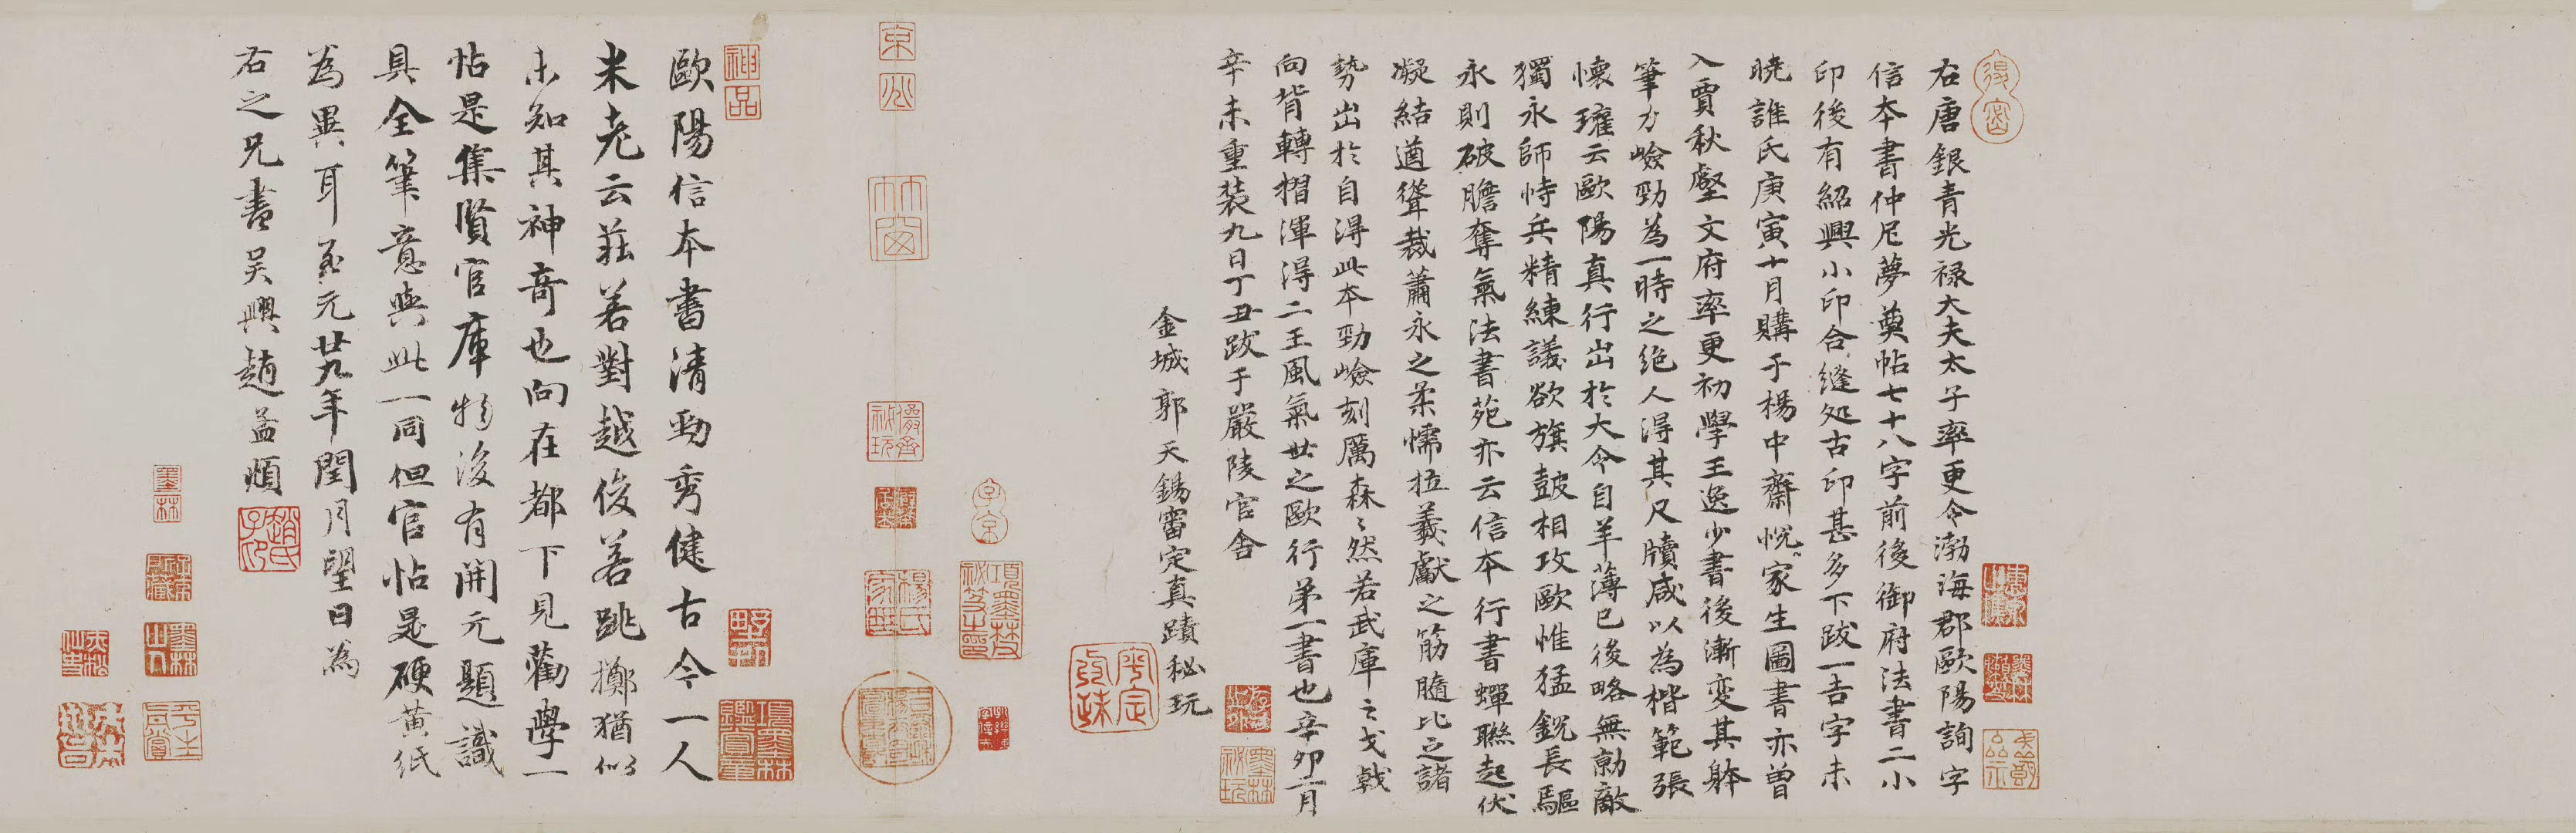 右唐銀青光祿大夫太子率更令渤海郡歐陽詢字
信本書仲尼夢奠帖七十八字前後御府法書二小
印後有紹興小印合縫処古印甚多下跋一吉字未
曉誰氏庚寅十月購于楊中齋怳家生圖書亦曾
入賈秋壑文府率更初學王逸少書後漸變其躰
筆力嶮勁為一時之絶人得其尺牘咸以為楷範張
懷瓘云歐陽真行出於大令自羊薄已後略無勍敵
獨永師恃兵精練議欲旗鼓相攻歐惟猛銳長驅
永則破膽奪氣法書苑亦云信本行書蟬聯起伏
凝結遒聳裁蕭永之柔懦拉羲獻之筋髓比之諸
勢出於自得此本勁嶮刻厲森〻然若武庫之戈戟
向背轉摺渾得二王風氣世之歐行第一書也辛卯二月
辛未重裝九日丁丑跋于嚴陵官舍
金城郭天錫審定真蹟秘玩
歐陽信本書清勁秀健古今一人
米老云莊若對越俊若跳擲猶似
未知其神奇也向在都下見勸學一
帖是集賢官庫物後有開元題識
具全筆意與此一同但官帖是硬黃紙
為異耳至元廿九年閏月望日為
右之兄書吳興趙孟頫
神品